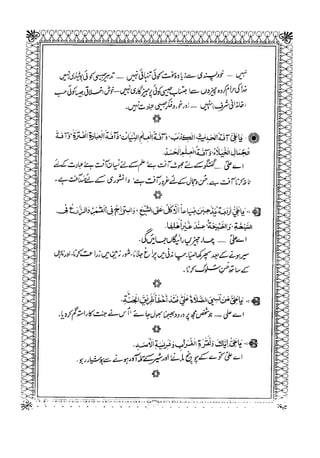 نہیں — خود پسندی سے زیادہ وحشت کوئی تنہائی نہیں — تدبیر جیسی کوئی ہوشیاری نہیں
خدا کی حرام کردہ چیزوں سے اجتناب جیسی کوئی پرہیزگاری نہیں — خوش اخلاقی جیسا کوئی حسب
(خاندانی شرف) نہیں — اور غور و فکر جیسی عبادت نہیں۔
یَا عَلِیُّ آفَةُ الْحَدِیثِ الْکِذْبُ، وَآفَةُ الْعِلْمِ النِّسْیَانُ، وَآفَةُ الْعِبَادَةِ الْفَتْرَةُ، وَآفَةُ
الْجَمَالِ الْخُیَلَاءُ، وَآفَةُ الْعِلْمِ الْحَسَدُ۔
اے علیؑ — گفتگو کے لئے جھوٹ آفت ہے علم کے لئے نسیان آفت ہے عبادت کے لئے
ناغہ کرنا آفت ہے، حسن و جمال کے لئے غرور آفت ہے دانشوری کے لئے حسد آفت ہے۔
یَا عَلِیُّ اَرْبَعَةٌ یَذْهَبْنَ ضِیَاعًا اَلْاَکْلُ عَلَی الشِّبَعِ، وَالسِّرَاجُ فِی الْقَمَرِ، وَالزَّرْعُ فِی
السَّبْخَةِ، وَالصَّنِیعَةُ عِنْدَ غَیْرِ اَهْلِهَا۔
اے علیؑ — چار چیزیں رائیگاں جائیں گی
سیر ہونے کے بعد پھر کھانا، چاندنی میں چراغ جلانا، شور زمین میں زراعت کرنا، اور نااہل
کے ساتھ حسن سلوک کرنا۔
یَا عَلِیُّ مَنْ نَسِیَ الصَّلَاةَ عَلَیَّ فَقَدْ اَخْطَأَ طَرِیقَ الْجَنَّةِ۔
اے علی — جو شخص مجھ پر درود بھیجنا بھول جائے اُس نے جنت کا راستہ گم کر دیا۔
یَا عَلِیُّ اِیَّاکَ وَنَقْرَةَ الْغُرَابِ وَفَرِیسَةَ الْاَسَدِ۔
اے علیؑ کوے کے چونچ مارنے اور شیر کے لقمہ ہونے سے ہوشیار رہو۔